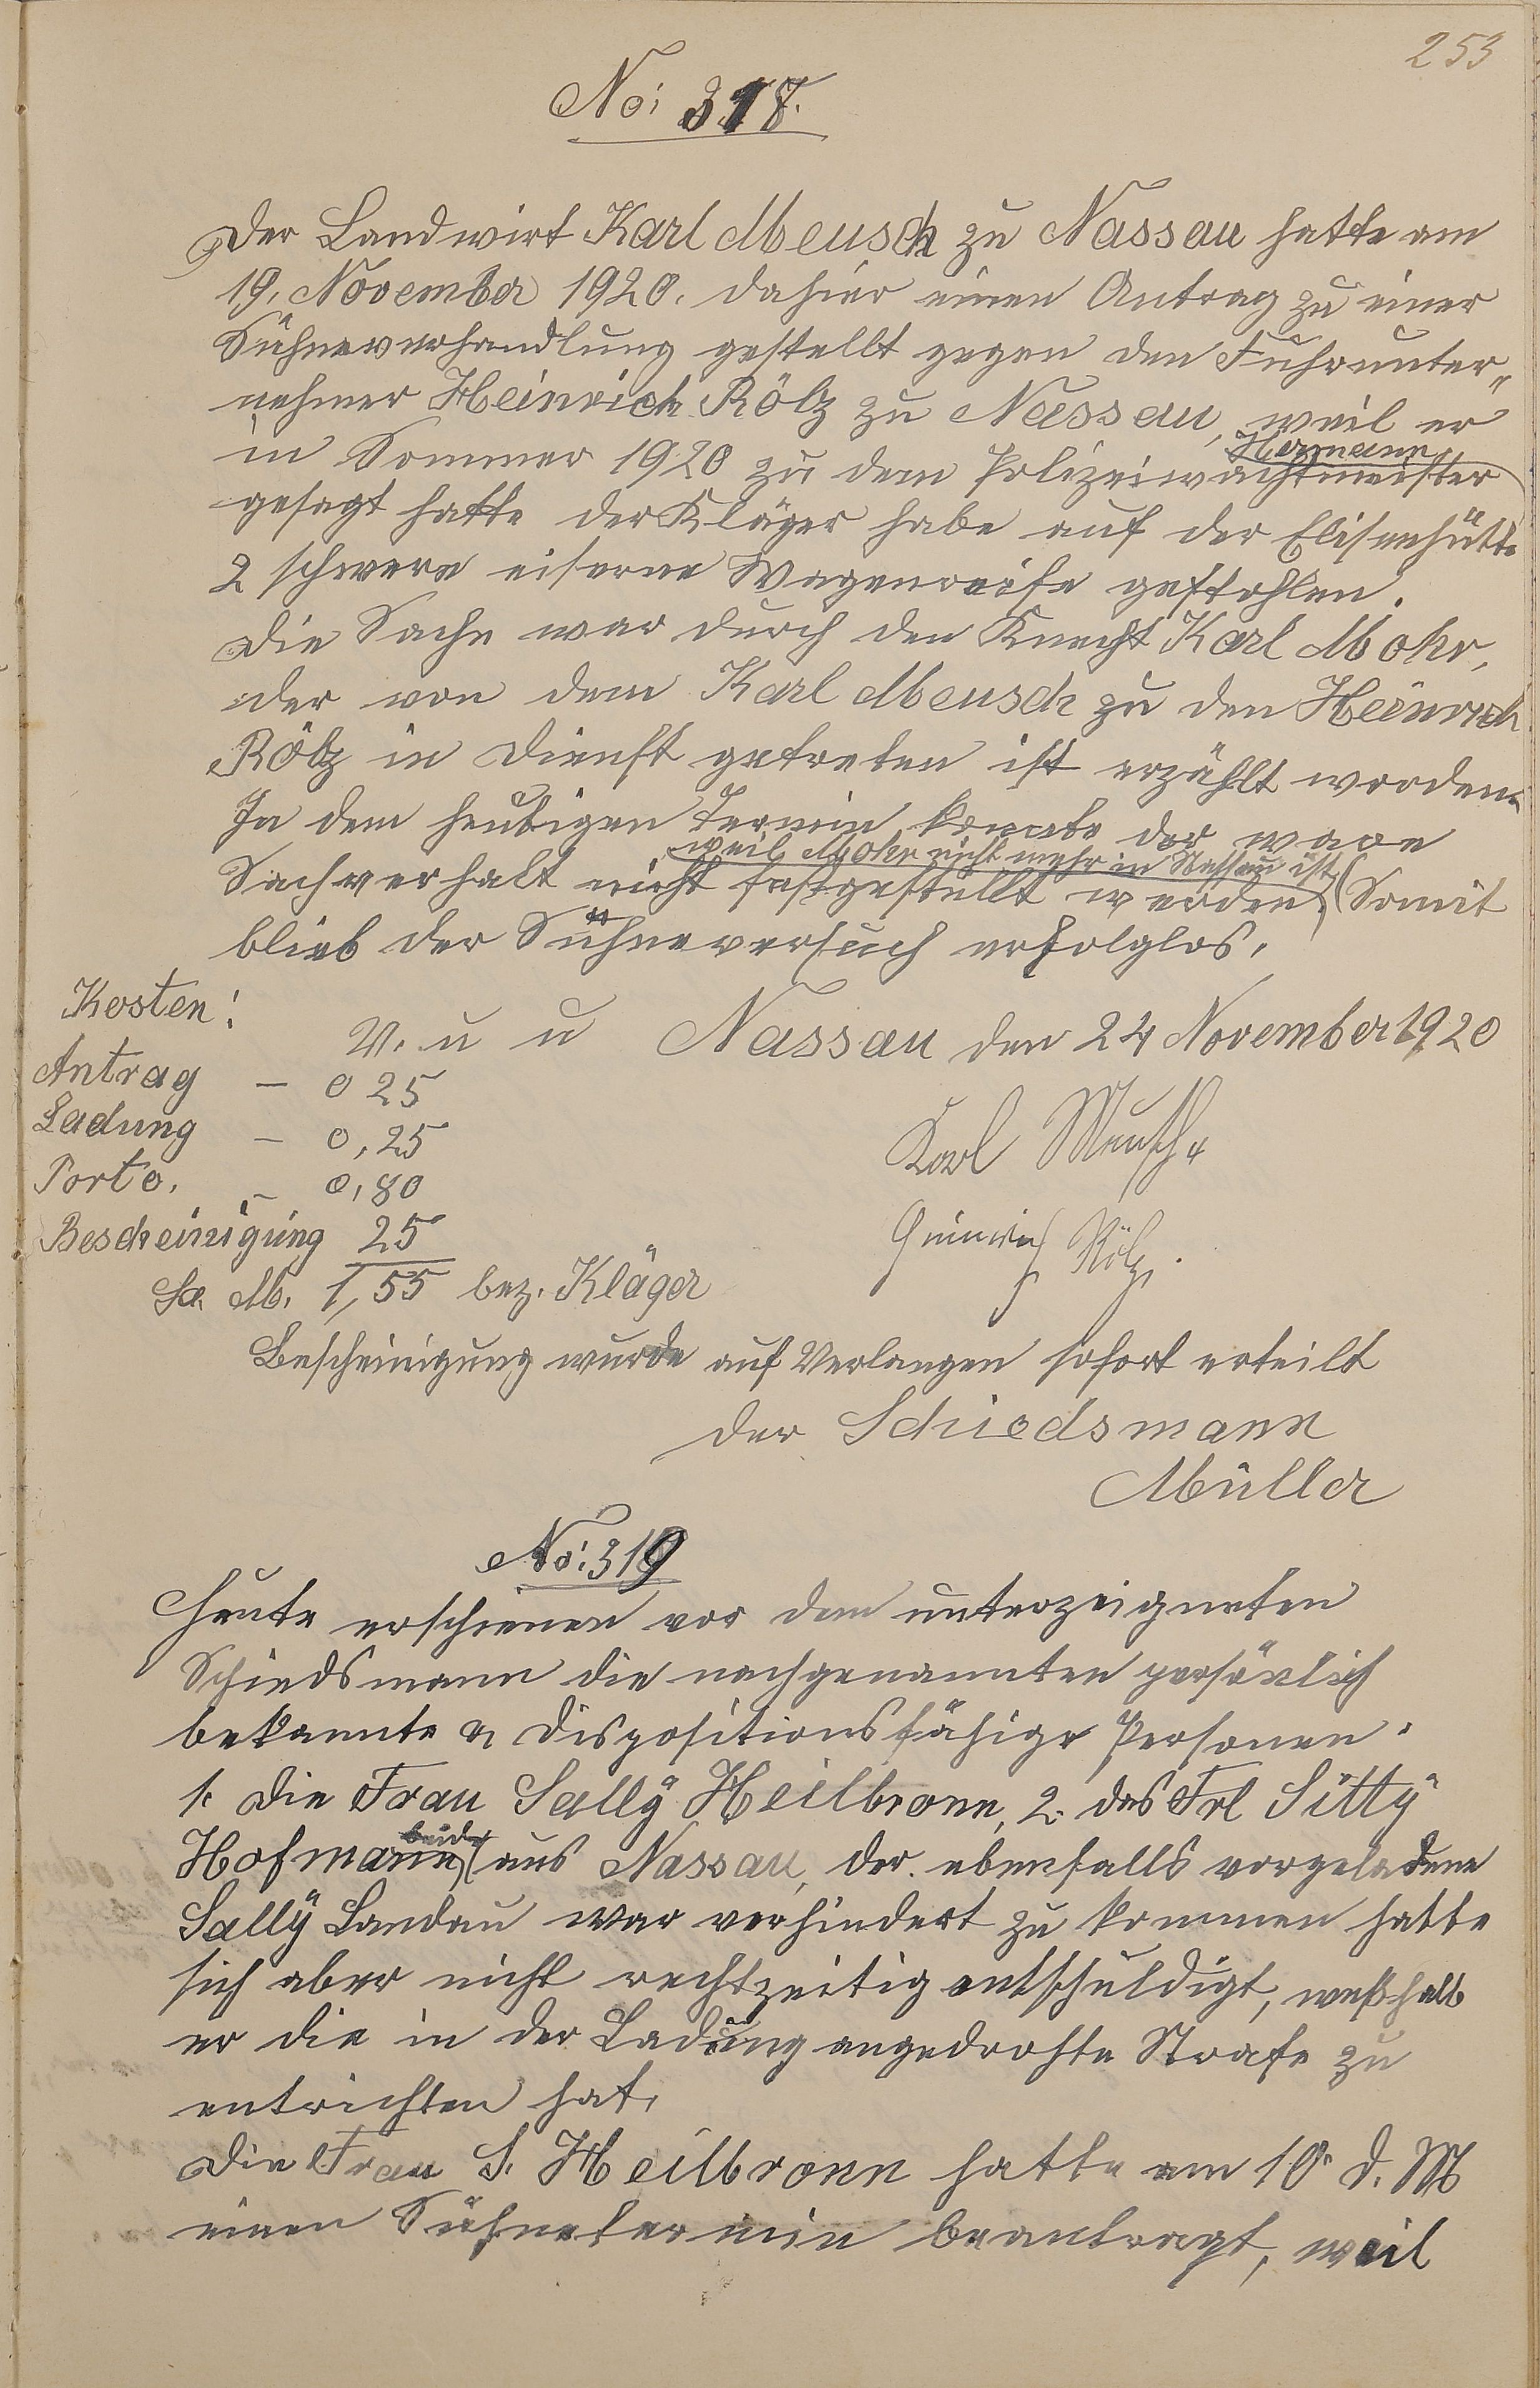 253
No: 318.
Der Landwirt Karl Meusch zu Nassau hatte am
19. November 1920. dahier einen Antrag zu einer
Sühneverhandlung gestellt gegen den Fuhrunter„
nehmer Heinrich Rölz zu Nassau, weil er
Hermann
in Sommer 1920 zu dem Polizeiwachtmeister
gesagt hatte der Kläger habe auf der Elisenhütte
2 schwere eiserne Wagenreife gestohlen.
Die Sache war durch den Knecht Karl Mohr,
der von dem Karl Meusch zu den Heinrich
Rölz in Dienst getreten ist erzählt worden.
In dem heutigen Termin konnte der ware
weil Mohr nicht mehr in Nassau ist
Sachverhalt nicht festgestellt werden. Somit
blieb der Sühneversuch erfolglos.
Kosten:
V. u u Nassau den 24 November 1920
Antrag – 0 25
Ladung – 0,25
Karl Meusch
Porto. – 0,80
Bescheinigung 25
Heinrich Rölz.
Sa. M. 1,55 bez. Kläger
Bescheinigung wurde auf Verlangen sofort erteilt
Der Schiedsmann
Müller
No: 319
Heute erschienen vor dem unterzeigneten
Schiedsmann die nachgenannten persönlich
bekannte u dispositionsfähige Personen.
1. Die Frau Sally Heilbronn, 2. das Frl Sitty
beide
Hofmann aus Nassau, der ebenfalls vorgeladene
Sally Landau war verhindert zu kommen hatte
sich aber nicht rechtzeitig entschuldigt, weßhalb
er die in der Ladung angedrohte Strafe zu
entrichten hat.
Die Frau S. Heilbronn hatte am 10. d. M
einen Sühnetermin beantragt, weil